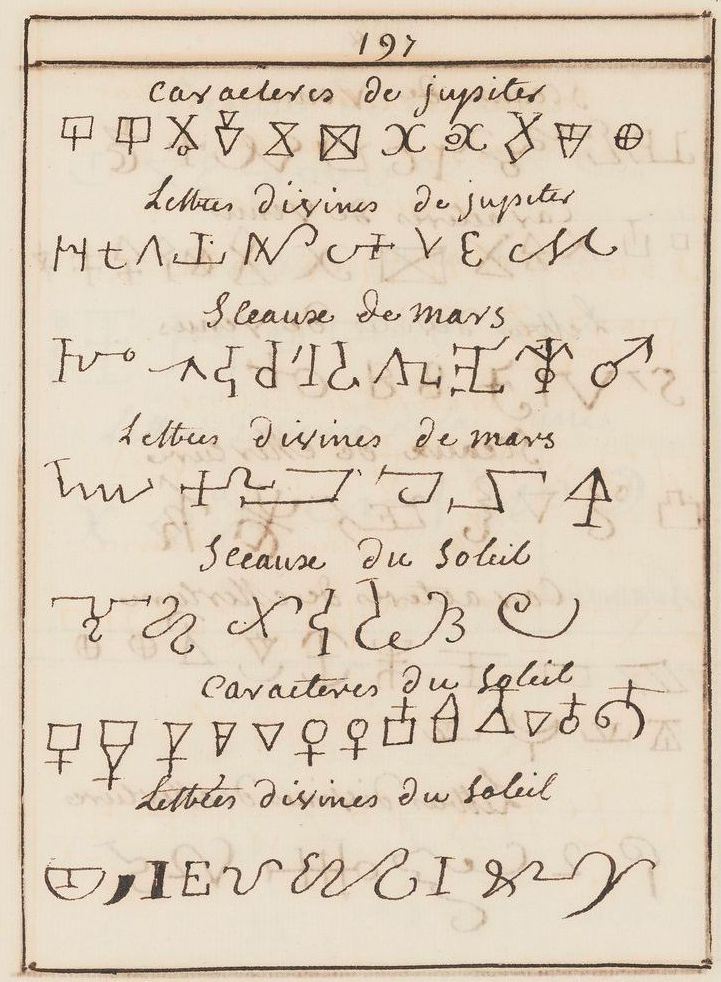 197
Caracteres de jupiter
Lettres divines de jupiter
Sceaux de mars
Lettres divines de mars
Sceaux du Soleil
Caracteres du Soleil
Lettres divines du Soleil